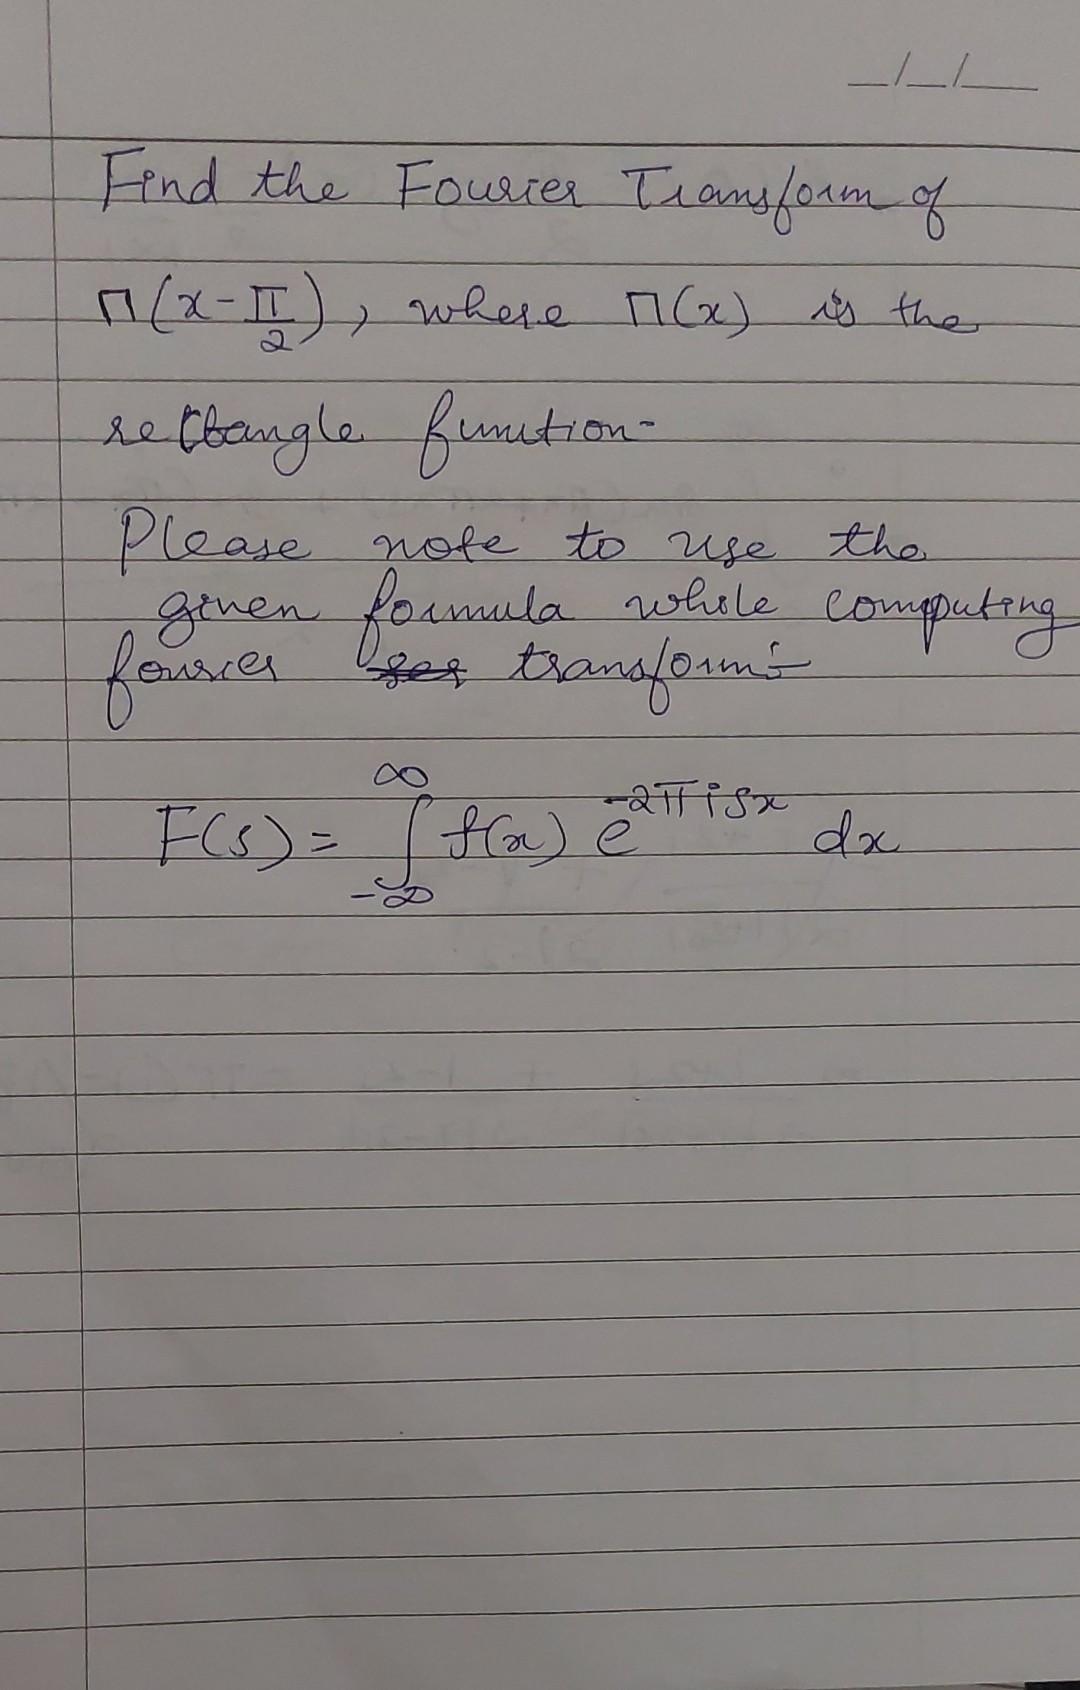 _/_/_
Find the Fourier Transform of
Π(x-π/2), where Π(x) is the
rectangle function-
Please note to use the
given formula while computing
fourier transform:-
F(s) = ∫_{-∞}^{∞} f(x) e^{-2πisx} dx